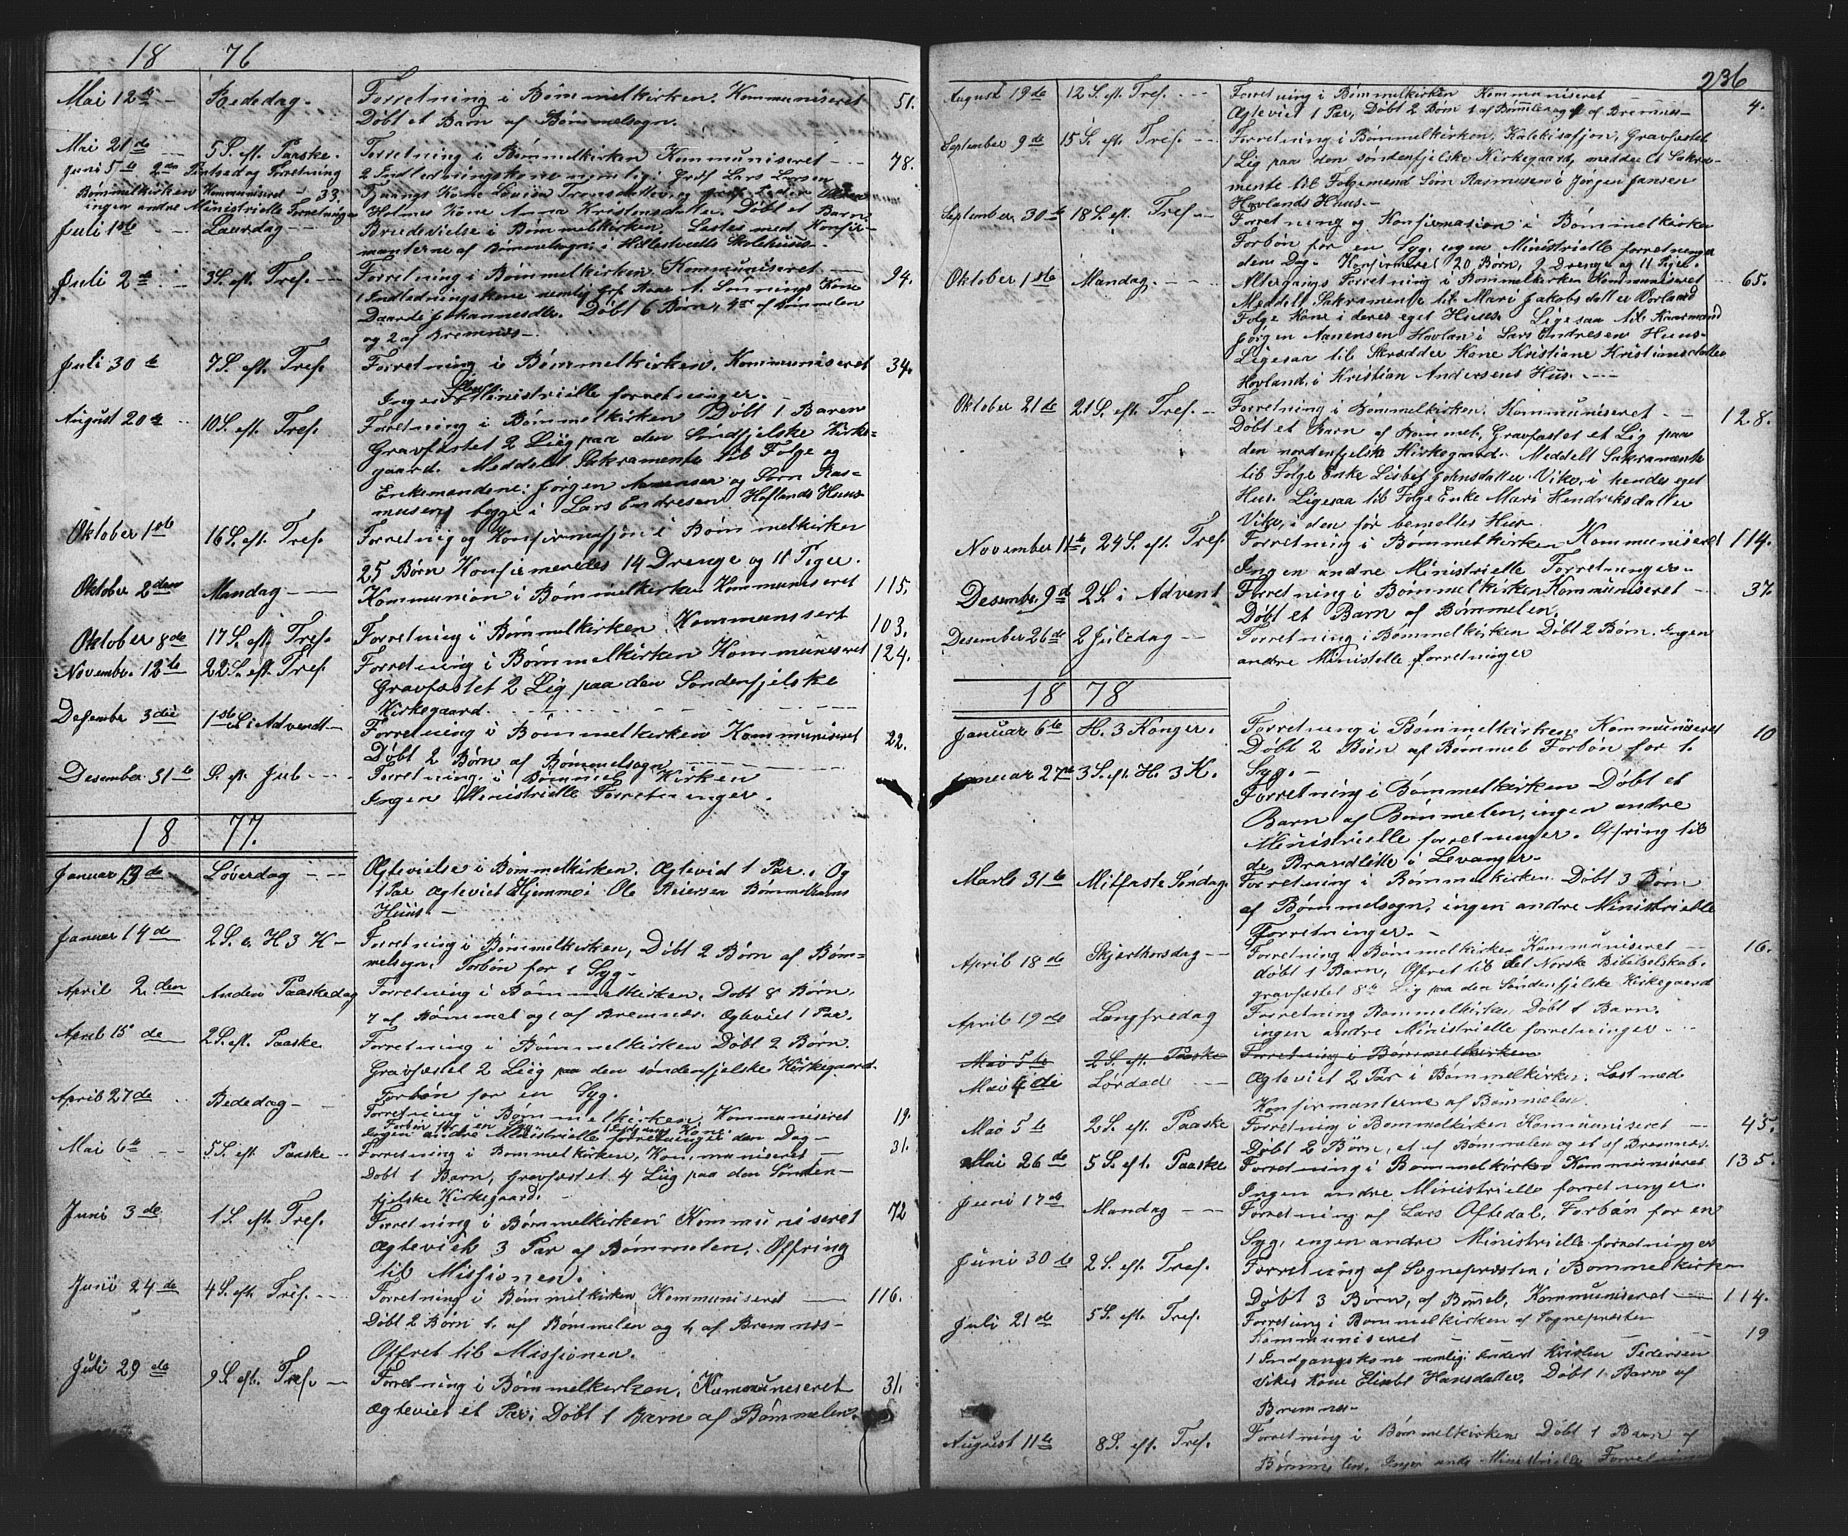 18 76
Mai 12te Bededag. Forretning i Bømmelkirken. Kommuniseret 51.
Døbt et Barn af Bømmelsogn.
Mai 21de 5 S. eft. Paaske. Forretning i Bømmelkirken Kommuniseret 78.
2 Indledningskone nemlig: Grdf Lars Larsen
Juni 5te 2den Pintsedag Forretning
Bømmelkirken Kommuniseret 33.
ingen andre Ministrielle Forretninger
Holmes Kone Anna Kristensdatter. Døbt et Barn
Juli 1ste Laurdag Brudevielse i Bømmelkirken. Læstes med Konfir-
manterne af Bømmelsogn i Hillestvedts Skolehuus.
Juli 2de 3 S. eft. Tref. Forretning i Bømmelkirken Kommuniseret 94.
1 Indledningskone nemlig Grf. Kone
Daarde Johannesdtr. Døbt 6 Børn, 4re af Bømmelen
og 2 af Bremnes.
Juli 30te 7 S. eft. Tref. Forretning i Bømmelkirken. Kommuniseret 34.
Ingen Ministrielle forretninger.
August 20de 10 S. eft. Tref. Forretning i Bømmelkirken Døbt 1 Baren
Gravfæstet 2 Liig paa den Søndfjelske Kirke-
gaard. Meddelt Sakramente til Følge og
Enkemandene: Jørgen Anensen og Sørn Ras-
musen, begge i Lars Endresen Hoflands Huus
Oktober 1ste 16 S. eft. Tref. Forretning og Konfirmasjon i Bømmelkirken
25 Børn Konfirmeredes 14 Drenge og 11 Piger.
Oktober 2den Mandag Kommunion i Bømmelkirken Kommuniseret 115.
Oktober 8de 17 S. eft. Tref. Forretning i Bømmelkirken. Kommunssert 103.
November 12te 22 S. eft. Tref. Forretning i Bømmelkirken Kommuniseret 124.
Gravfæstet 2 Lig paa den Søndenfjelske
Kirkegaard.
Desember 3die 1ste S. i Advendt Forretning i Bømmelkirken Kommuniseret 22.
Døbt 2 Børn af Bømmelsogn
Desember 31te S. eft. Jul Forretning i Bømmel Kirken
Ingen Ministrielle Forretninger.
18 77.
Januar 13de Løverdag Ægtevielse i Bømmelkirken. Ægtevid 1 Par. Og
1 Par Ægteviet Hjemme i Ole Reiersen Bømmelhavns
Huus.
Januar 14de 2 S. e. H 3 K Forretning i Bømmelkirken, Døbt 2 Børn af Bøm-
melsogn. Forbøn for 1 Syg.
April 2den Anden Paaskedag Forretning i Bømmelkirken. Døbt 8 Børn,
7 af Bømmel og 1 af Bremnæs. Ægteviet 1 Par.
April 15de 2 S. eft. Paaske Forretning i Bømmelkirken Døbt 2 Børn.
Gravfæstet 2 Liig paa den søndenfjelske Kirkegaard.
Forbøn for en Syg.
April 27de Bededag Forretning i Bømmelkirken Kommuniseret 19.
Forbøn for en Syg
Ingen andre Ministrielle forretninger den Dag
Mai 6te 5 S. eft. Paaske Forretning i Bømmelkirken, Kommuniseret 31.
Døbt 1 Barn, Gravfæstet 4 Liig paa den Sønden-
fjelske Kirkegaard.
Juni 3de 1 S. eft. Tref. Forretning i Bømmelkirken Kommuniseret 72
Ægteviet 3 Par af Bømmelen. Offring
til Missjonen.
Juni 24de 4 S. eft. Tref. Forretning i Bømmelkirken Kommuniseret 116.
Døbt 2 Børn 1. af Bømmelen og 1. af Bremnes
Offret til Missjonen.
Juli 29de 9 S. eft. Tref. Forretning i Bømmelkirken. Kummuniseret 31.
Ægteviet et Par, Døbt 1 Barn af Bømmelen.
236
August 19de 12 S. eft. Tref. Forretning i Bømmelkirken Kommuniseret 4.
Ægteviet 1 Par, Døbt 2 Børn 1 af Bømlen og 1 af Bremnes
September 9de 15 S. eft. Tref. Forretning i Bømmelkirken, Katekisasjon, Gravfæstet
1 Lig paa den søndenfjelske Kirkegaard, meddelt Sakra-
mente til Følgemend Sørn Rasmusen i Jørgen Jansen
Hovlands Huus.
September 30te 18 S. eft. Tref. Forretning og Konfirmasion i Bømmelkirken
Forbøn for en Syg, ingen Ministrielle forretninger
den Dag. Konfirmeret 20 Børn, 9 Drenge og 11 Piger.
Oktober 1ste Mandag. Altergangs Forretning i Bømmelkirken Kommuniseret 65.
Meddelt Sakramente til Mari Jakobsdatter Hovland
Følge Kone i deres eget Huus. Ligesaa til Kaarmand
Jørgen Aanensen Hovlan i Lars Andresen Huus
Ligesaa til Skrædder Kone Kristiane Kristiansdatter
Hovland, i Kristian Andersens Hus.
Oktober 21de 21 S. eft. Tref. Forretning i Bømmelkirken. Kommuniseret 128.
Døbt et Barn af Bømmel, Gravfæstet et Lig paa
den nordenfjelske Kirkegaard. Meddelt Sakramente
til Følge Enke Lisbet Johnsdatter Vike, i hendes eget
Hus. Ligesaa til Følge Enke Mari Hendriksdatter
Vike, i den før bemeltes Hus.
November 11te 24 S. eft. Tref. Forretning i Bømmelkirken Kommuniseret 114.
Ingen andre Ministrielle Forretninger.
Desember 9de 2 S. i Advent Forretning i Bømmelkirken Kommuniseret 37.
Døbt et Barn af Bømmelen.
Desember 26de 2 Juledag Forretning i Bømmelkirken Døbt 2 Børn. Ingen
andre Ministelle forretninger
18 78
Januar 6te H. 3 Konger. Forretning i Bømmelkirken. Kommuniseret 10
Døbt 2 Børn af Bømmel Forbøn for 1.
Syg.
Januar 27de 3 S. eft. H. 3 K. Forretning i Bømmelkirken Døbt et
Barn af Bømmelen, ingen andre
Ministrielle forretninger. Ofring til
de Brandlitte i Levanger.
Marts 31te Mitfaste Søndag. Forretning i Bømmelkirken. Døbt 3 Børn
af Bømmelsogn, ingen andre Ministrielle
Forretninger.
April 18de Skjærthorsdag Forretning i Bømmelkirken Kommuniseret 16.
døbt 1 Barn, Offret til det Norske Bibelselskab.
gravfæstet 8te Lig paa den Søndenfjelske Kirkegaard
April 19de Langfredag Forretning Bømmelkirken Døbt 1 Barn.
ingen andre Ministrielle forretninger
Mai 5te 2 S. eft. Paaske Forretning i Bømmelkirken
Mai 4di Lørdad Ægteviet 2 Par i Bømmelkirken. Læst med
Konfirmanterne af Bømmelen.
Mai 5te 2 S. eft. Paaske Forretning i Bømmelkirken Kommuniseret 45.
Døbt 2 Børn, et af Bømmelen og et af Bremnes.
Mai 26de 5 S. eft. Paaske Forretning i Bømmelkirken Kommuniseret 135.
Ingen andre Ministrielle forretninger.
Juni 17de Mandag Forretning af Lars Oftedal, Forbøn for en
Syg, ingen andre Ministrielle forretninger
Juni 30te 2 S. eft. Tref. Forretning af Sognepræsten i Bømmelkirken
Døbt 3 Børn, af Bømel. Kommuniseret 114.
Juli 21de 5 S. eft. Tref. Forretning i Bømmelkirken af Sognepresten
Kommuniseret 19
1 Indgangskone nemlig: Kristen Pedersen
Vikes Kone Elisabt Hansdatter, Døbt 1 Barn af
Bremnes.
August 11te 8 S. eft. Tref. Forretning i Bømmelkirken Døbt 1 Barn af
Bømmelen. Ingen andre Ministrielle Forretninger